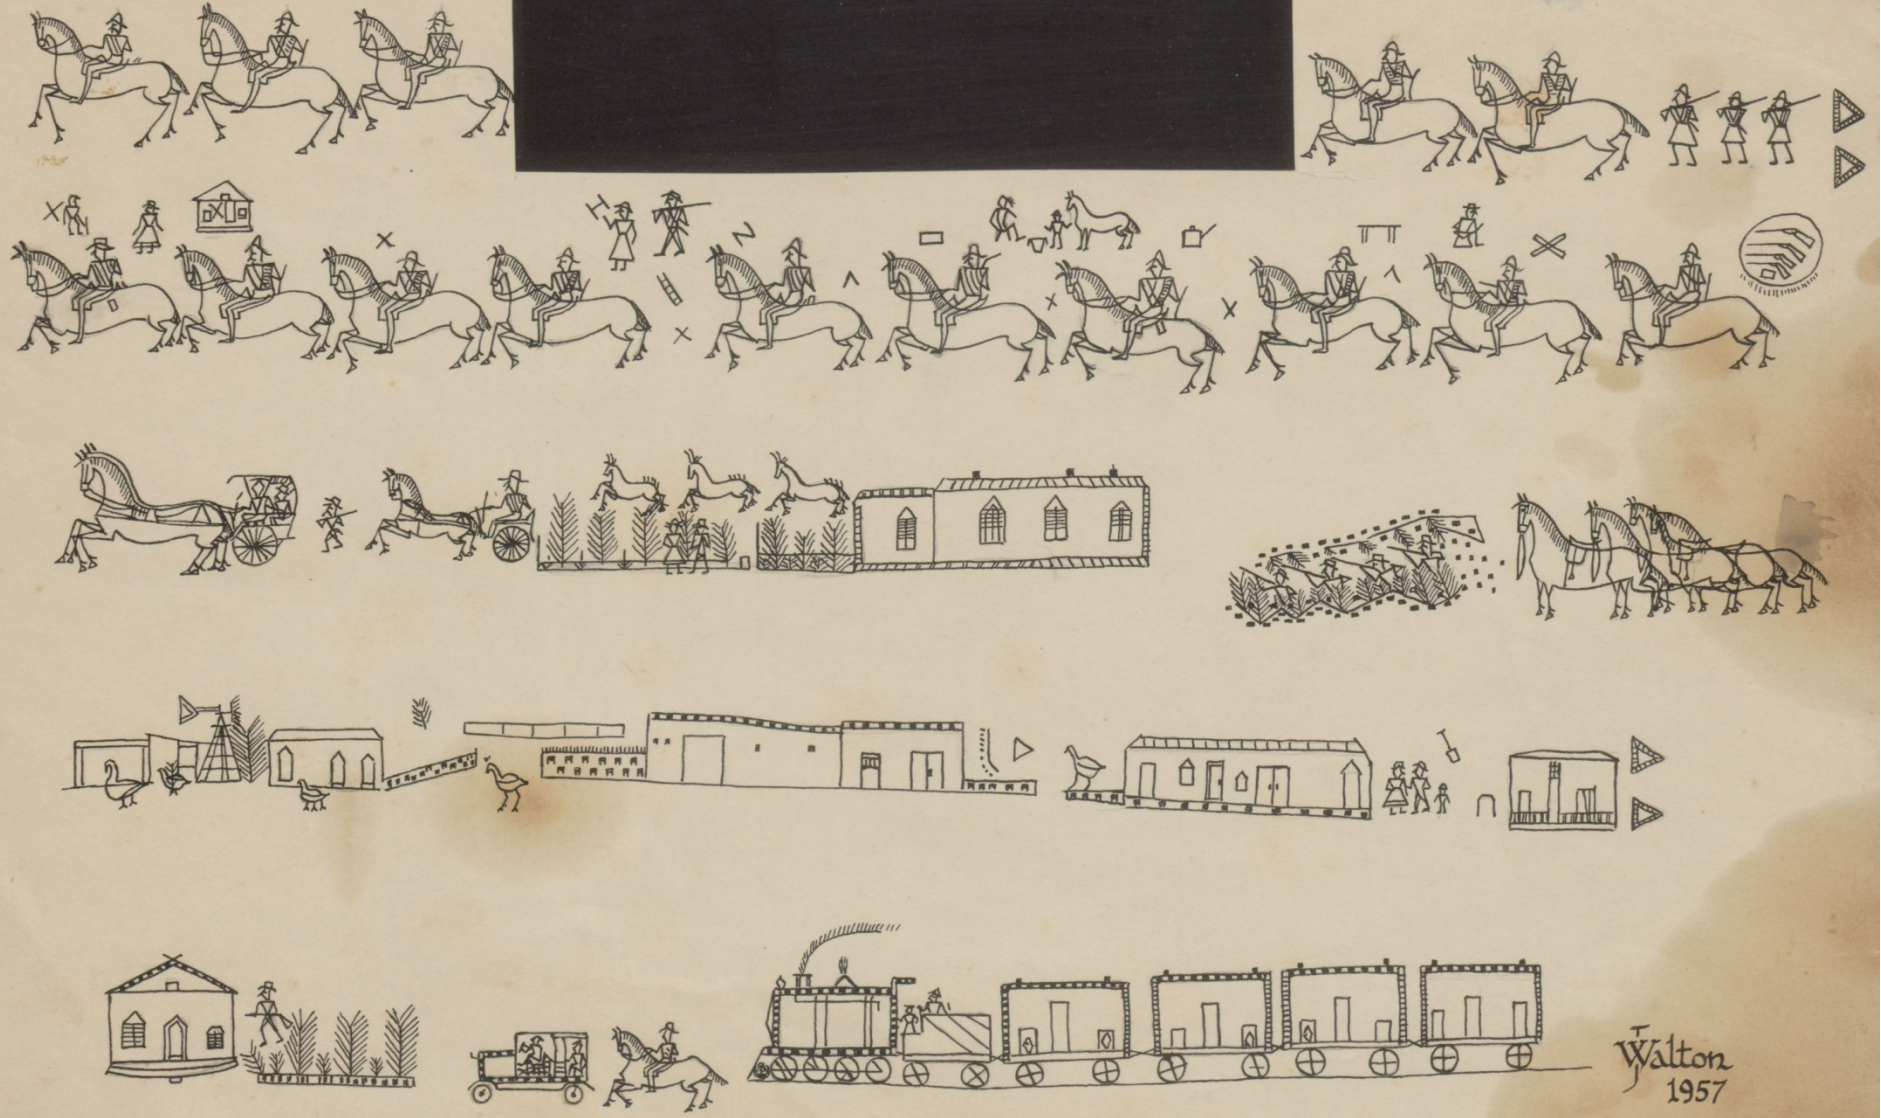 TJ Walton
1957